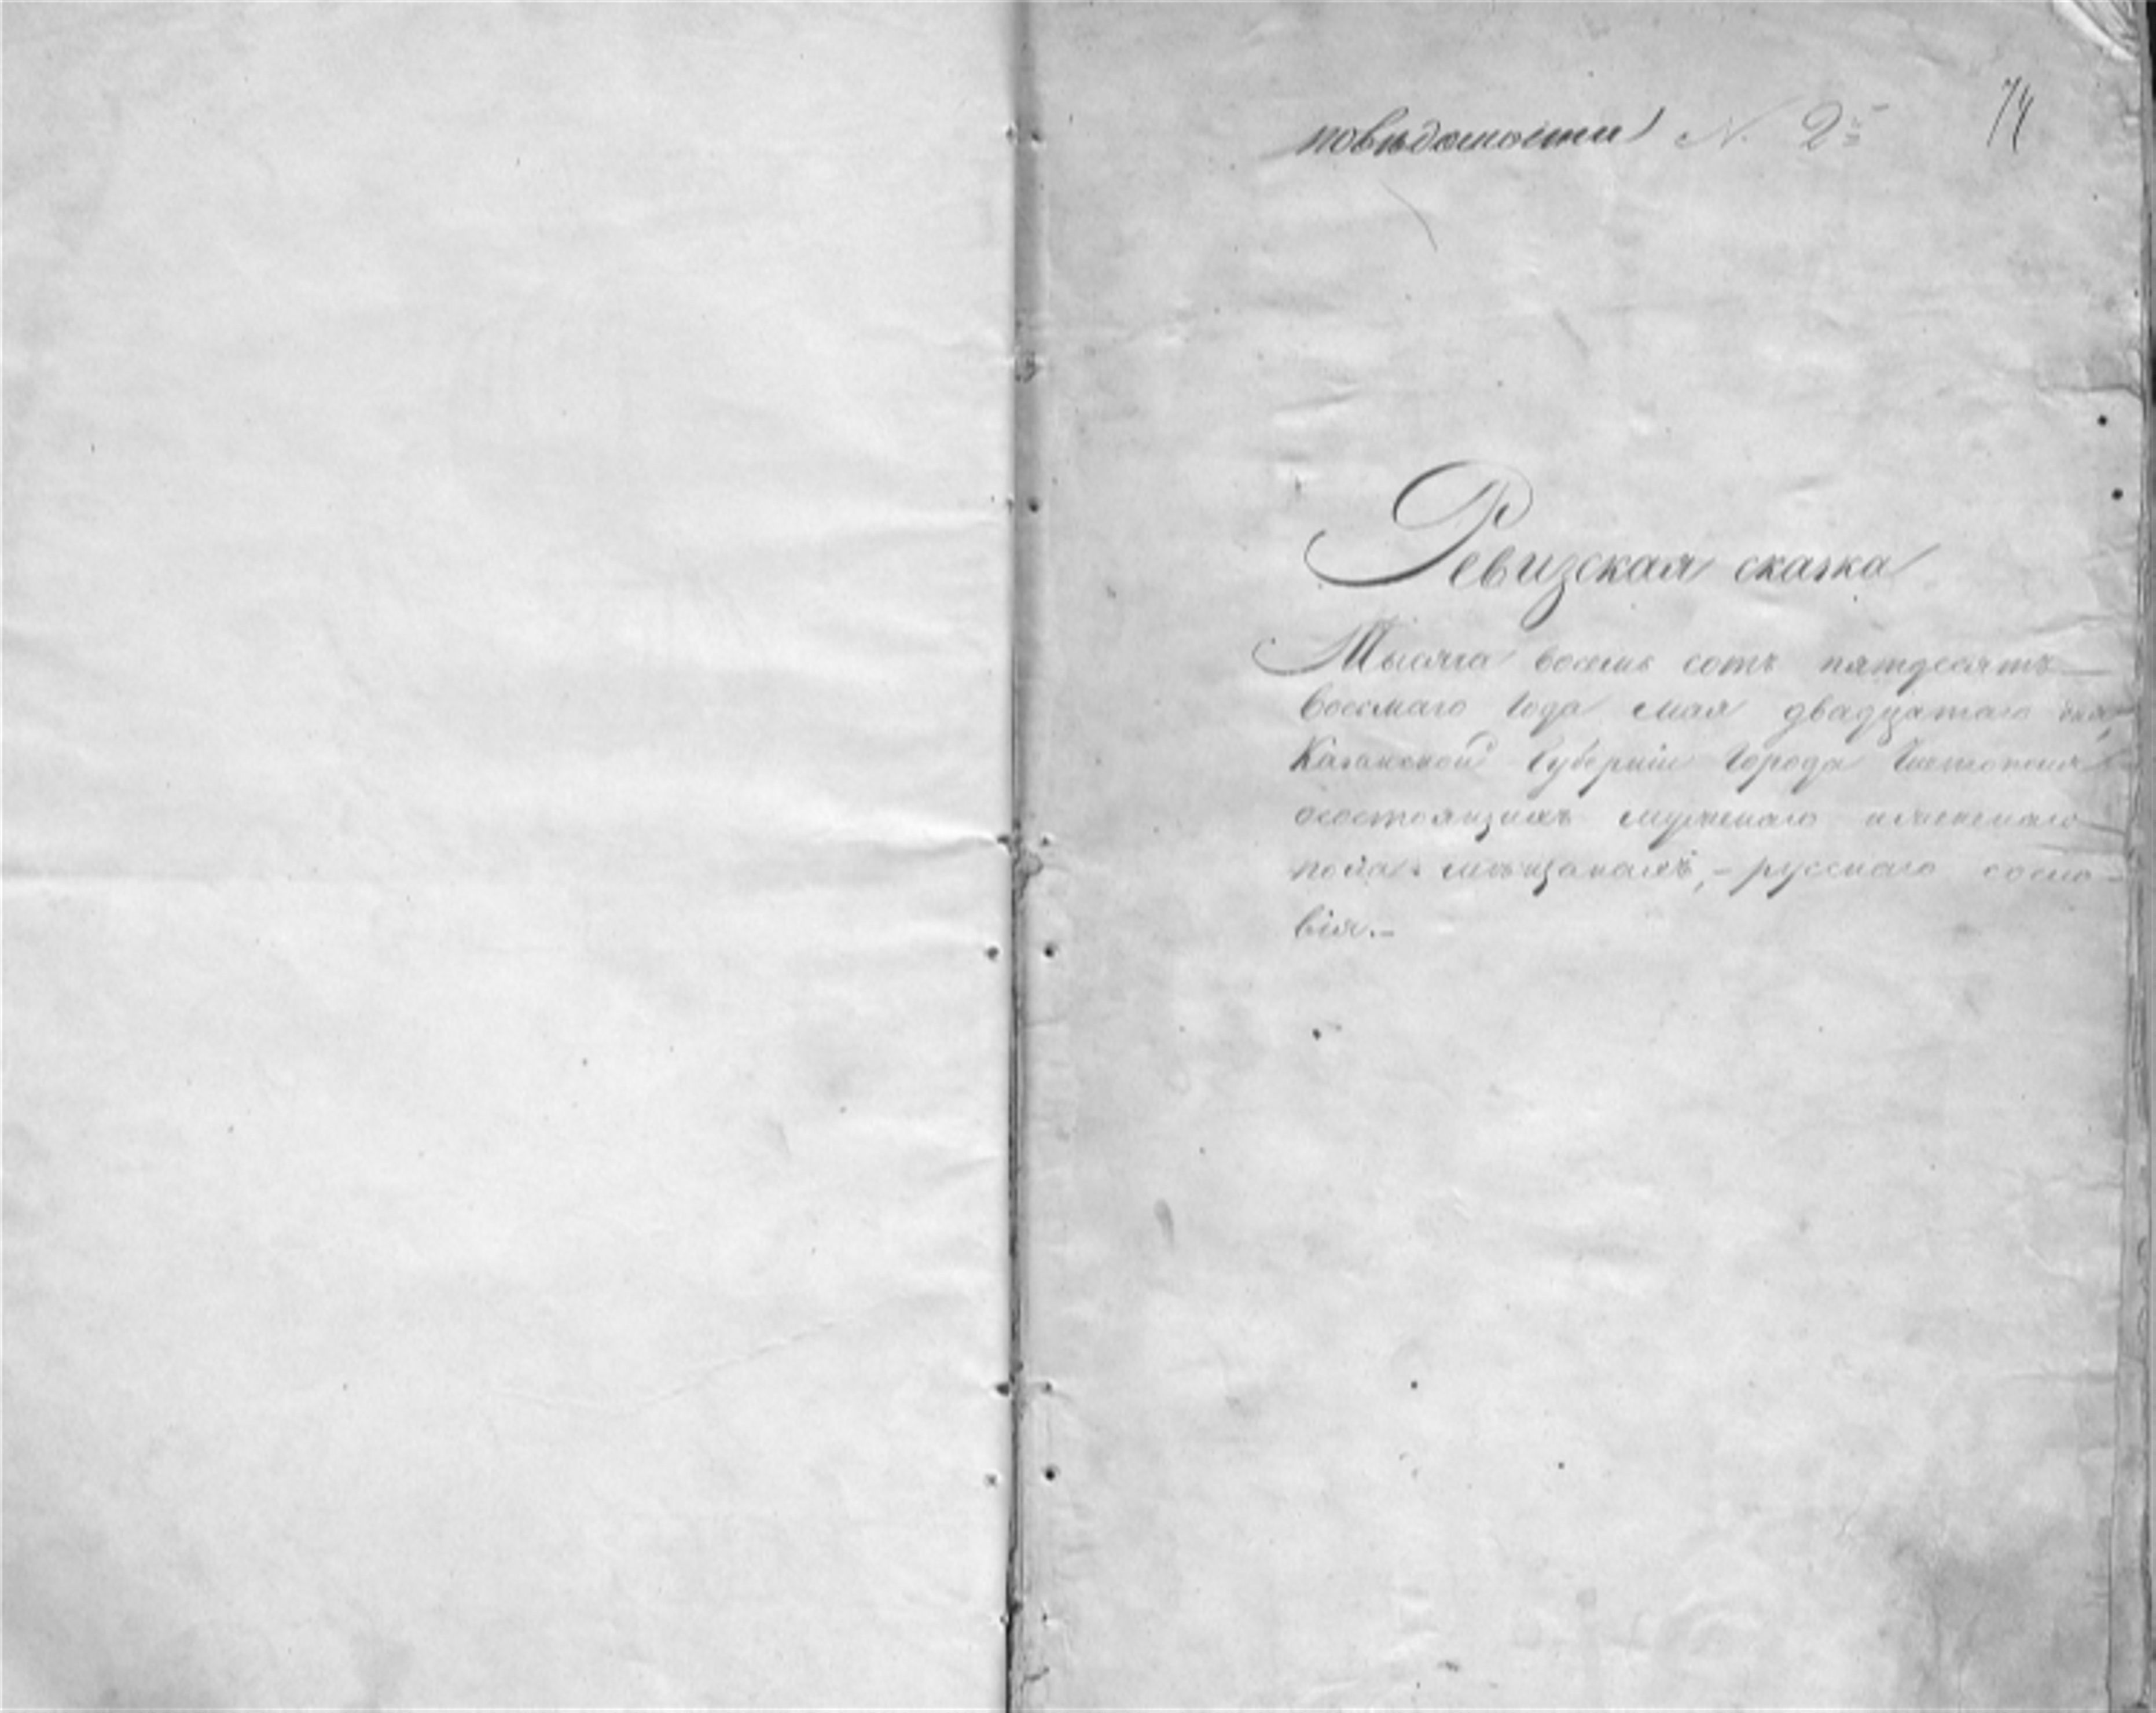 повѣдомости N. 2й
74
Ревизская сказка
Тысяча восемь сотъ пятдесятъ
восьмаго Года Мая двадцатаго дня,
Казанской Губерніи Города Чистополя
осостоящихъ мужескаго иженскаго
пола мѣщанахъ, - русскаго сосло-
вія. -